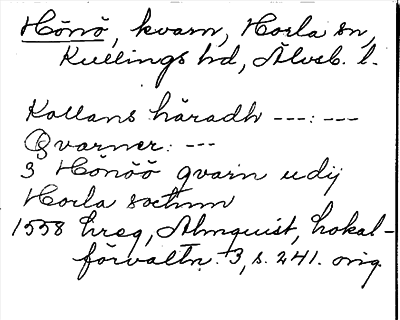 Hönö, kvarn, Horla sn,
Kullings hd, Älvsb. l.
Kollans häradh ---: ---
Qvarner: ---
3 Hönöö qvarn udij
Horla sochnn
1558 hreg, Almquist, Lokal-
förvaltn. 3, s. 241. orig.